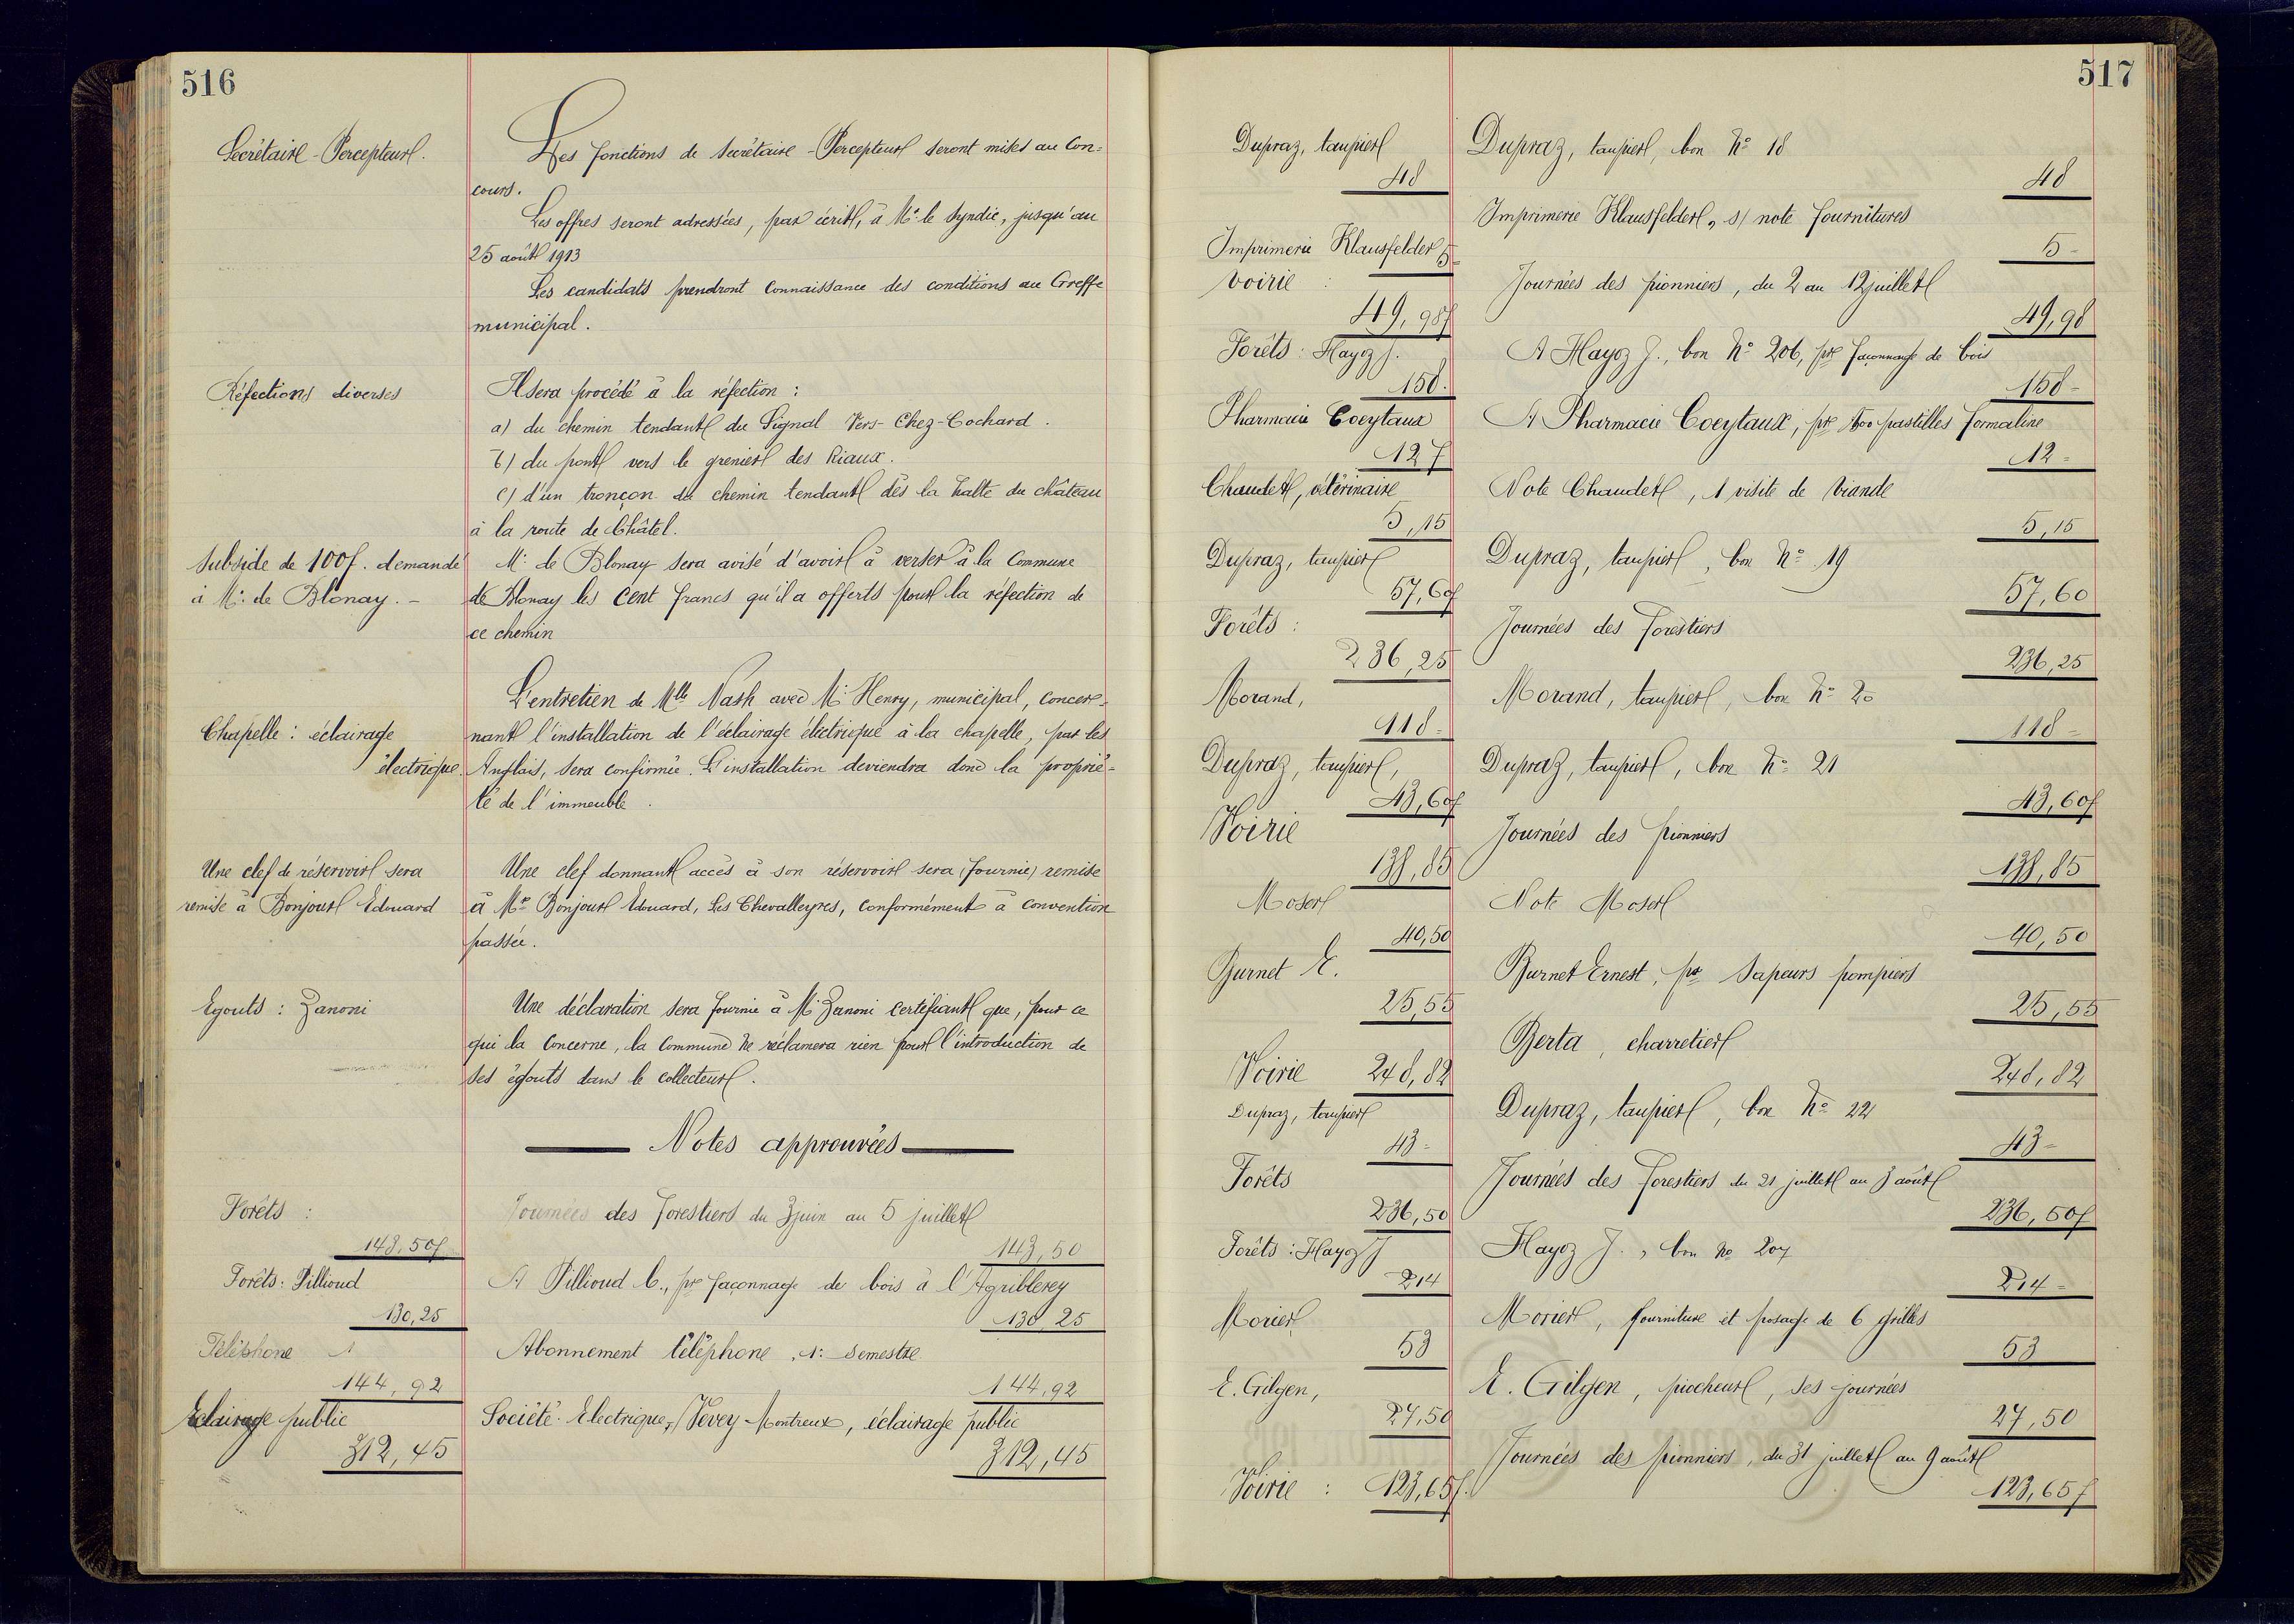 516
Secrétaire-Percepteur.
Les fonctions de Secrétaire-Percepteur seront mises au Con=
cours.
Les offres seront adressées, par écrit, à Mr. le Syndic, jusqu'au
25 août 1913
Les candidats prendront connaissance des conditions au Greffe
municipal.
Réfections diverses
Il sera procédé à la réfection :
a) du chemin tendant du Signal Vers-Chez-Cochard.
b) du pont vers le grenier des Riaux.
c) d'un tronçon du chemin tendant dès la halte du château
à la route de Châtel.
Subside de 100f. demandé
à Mr. de Blonay. -
Mr. de Blonay sera avisé d'avoir à verser à la Commune
de Blonay les cent francs qu'il a offerts pour la réfection de
ce chemin
Chapelle : éclairage
électrique.
L'entretien de Mlle Nash avec Mr. Henry, municipal, concer-
nant l'installation de l'éclairage électrique à la chapelle, par les
Anglais, sera confirmée. L'installation deviendra donc la proprié-
té de l'immeuble.
Une clef de réservoir sera
remise à Bonjour Edouard
Une clef donnant accès à son réservoir sera (fournie) remise
à Mr Bonjour Edouard, Les Chevalleyres, conformément à convention
passée.
Egouts : Zanoni
Une déclaration sera fournie à Mr. Zanoni certifiant que, pour ce
qui la concerne, la Commune ne réclamera rien pour l'introduction de
ses égouts dans le collecteur.
Notes approuvées
Forêts :
143,50f
Journées des Forestiers du 3 juin au 5 juillet
143,50
Forêts : Pilliod
130,25
A Pilliod C., pr façonnage de bois à l'Agriblerey
130,25
Téléphone
144,92
Abonnement téléphone, 1r. Semestre
144,92
Eclairage public
312,45
Société Electrique, Vevey-Montreux, éclairage public
312,45
517
Dupraz, taupier
48
Dupraz, taupier, bon No 18
48
Imprimerie Klausfelder
5-
Imprimerie Klausfelder, s/ note fournitures
5-
Voirie
49,98f
Journées des pionniers, du 2 au 12 juillet
49,98
Forêts : Hayoz J.
158.
A Hayoz J., bon No 206, pr façonnage de bois
158-
Pharmacie Coeytaux
12f
A Pharmacie Coeytaux, pr 400 pastilles formaline
12-
Chaudet, vétérinaire
5,15
Note Chaudet, 1 visite de viande
5,15
Dupraz, taupier
57,60f
Dupraz, taupier, bon No 19
57,60
Forêts :
236,25
Journées des Forestiers
236,25
Morand,
118-
Morand, taupier, bon No 20
118-
Dupraz, taupier,
43,60f
Dupraz, taupier, bon No 21
43,60f
Voirie
Journées des pionniers
Moser
40,50
Note Moser
40,50
Burnet E.
25,55
Burnet Ernest, pr Sapeurs pompiers
25,55
Voirie 248,82
Berta, charretier
248,82
Dupraz, taupier
43-
Dupraz, taupier, bon No 22
43-
Forêts
236,50
Journées des Forestiers du 21 juillet au 3 août
236,50f
Forêts : Hayoz J
214
Hayoz J., bon no 207
214-
Morier
53
Morier, fourniture et posage de 6 grilles
53
E. Gilgen,
27,50
E. Gilgen, piocheur, ses journées
27,50
Voirie : 123,65f.
Journées des pionniers, du 31 juillet au 9 août
123,65f